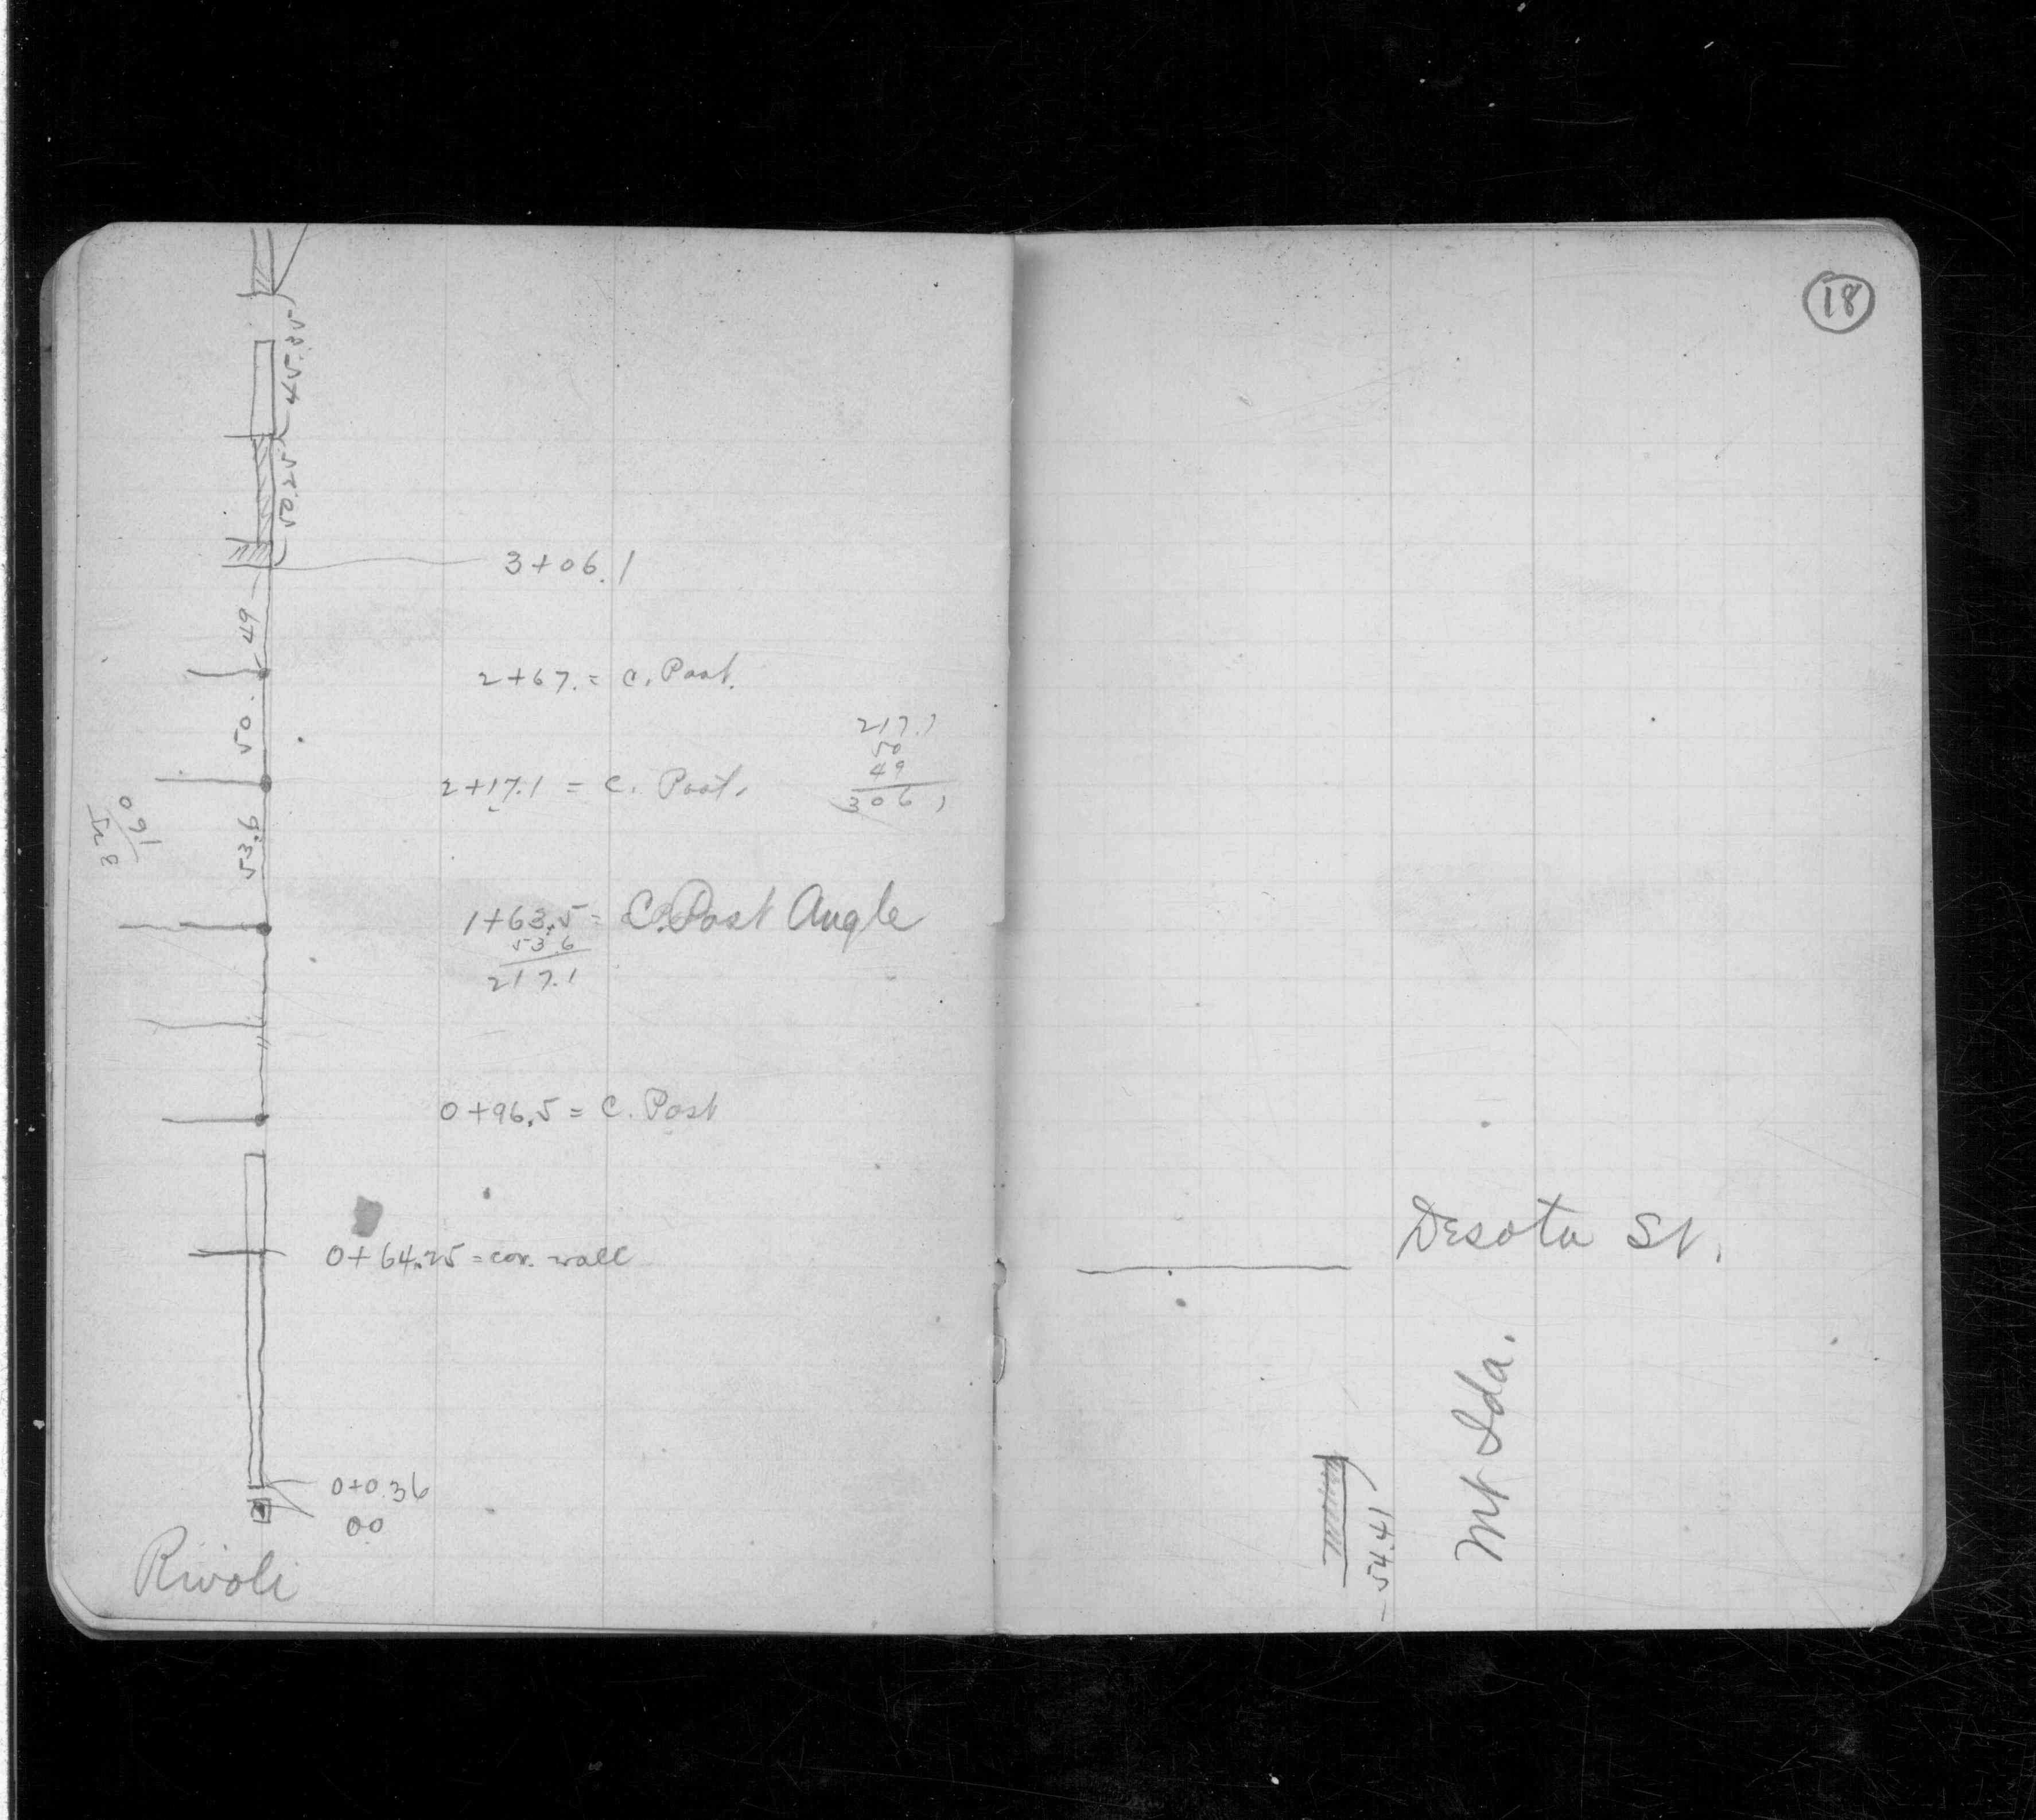 3+06.1
49
2+67. = C. Post.
50.
217.1
50
49
306 1
2+17.1 = C. Post.
53.6
160
1+63.5 = C. Post Angle
53.6
217.1
0+96.5 = C. Post
0+64.25 = cor. wall
0+0.36
00
Rivoli
18
Desota St.
Mt Ida.
54.41